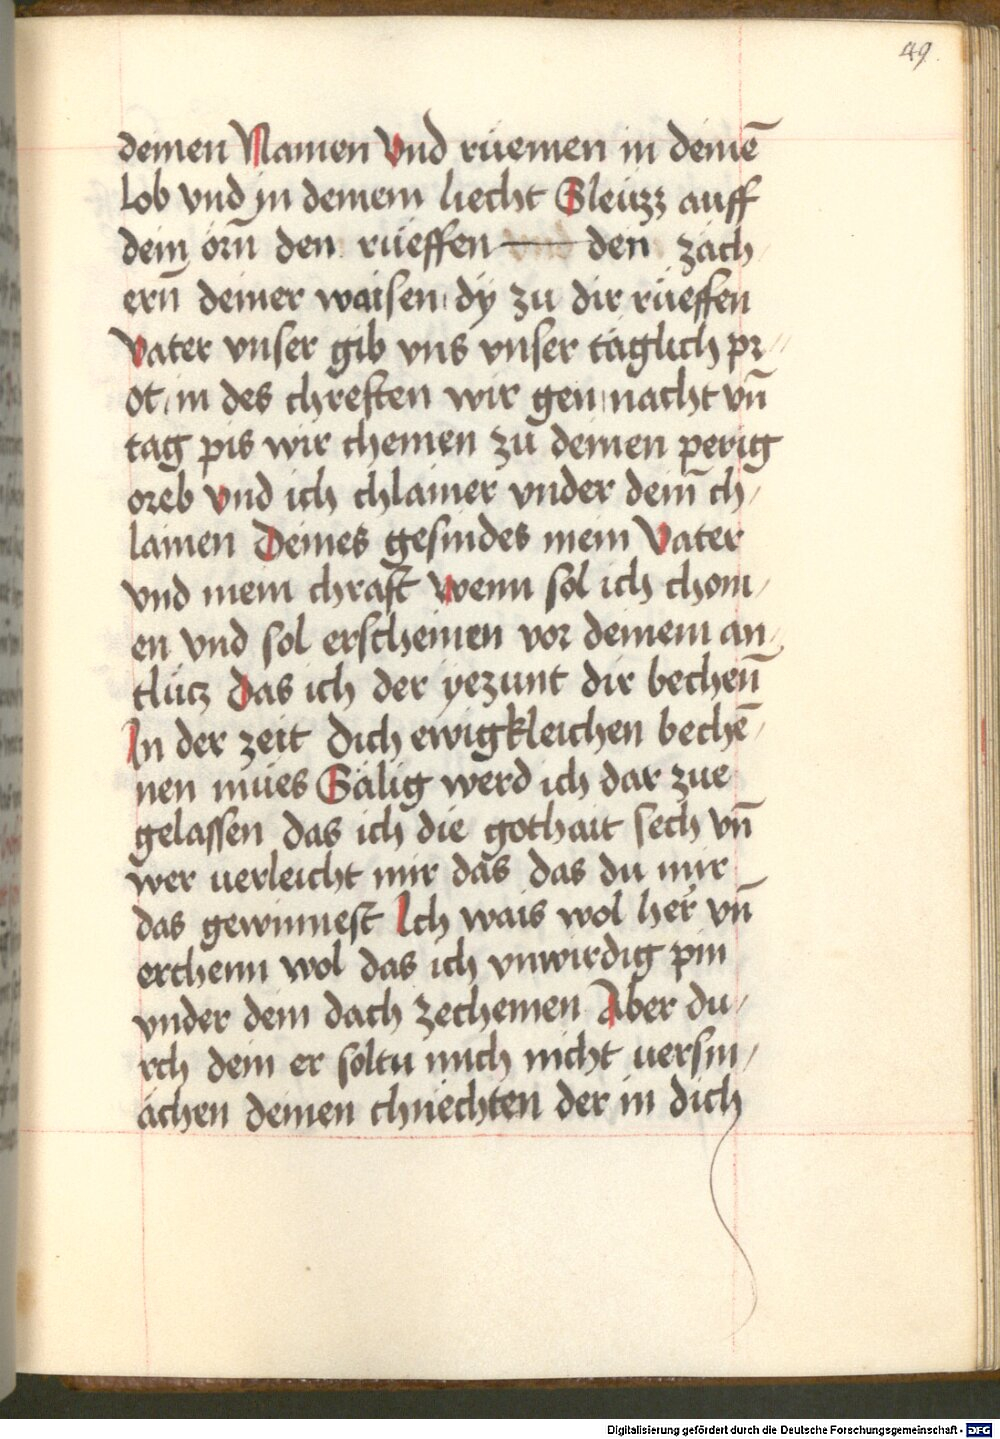 49.
deinen Namen Vnd rüemen in deinē
lob vnd jn deinem liecht Sleüzz auff
dein örn̄ den rüeffen — den zäch
ern̄ deiner waisen dÿ zu dir rüeffen
Vater vnser gib vns vnser täglich pr//
ot in des chreften wir gen nacht vn̄
tag pis wir chemen zu deinen perig
oreb vnd ich chlainer vnder dein̄ ch/
lainen Deines gesindes mein Vater
vnd mein chraft Wenn sol ich chom/
en vnd sol erscheinen vor deinem an/
tlücz Das ich der yezunt dir bechen̄
In der zeit dich ewigkleichen bechē/
nen mües Sälig werd ich dar zue
gelassen das ich die gothait sech vn̄
wer uerleicht mir das das du mir
das gewinnest Ich wais wol her vn̄
erchenn wol das ich vnwirdig pin
vnder dein dach zechemen Aber du/
rch dein er soltu mich nicht uersm/
ächen deinen chnechten der in dich
Digitalisierung gefördert durch die Deutsche Forschungsgemeinschaft - DFG